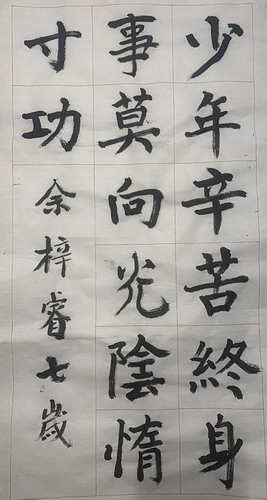 少年辛苦終身
事莫向光陰惰
寸功
余梓睿七歲